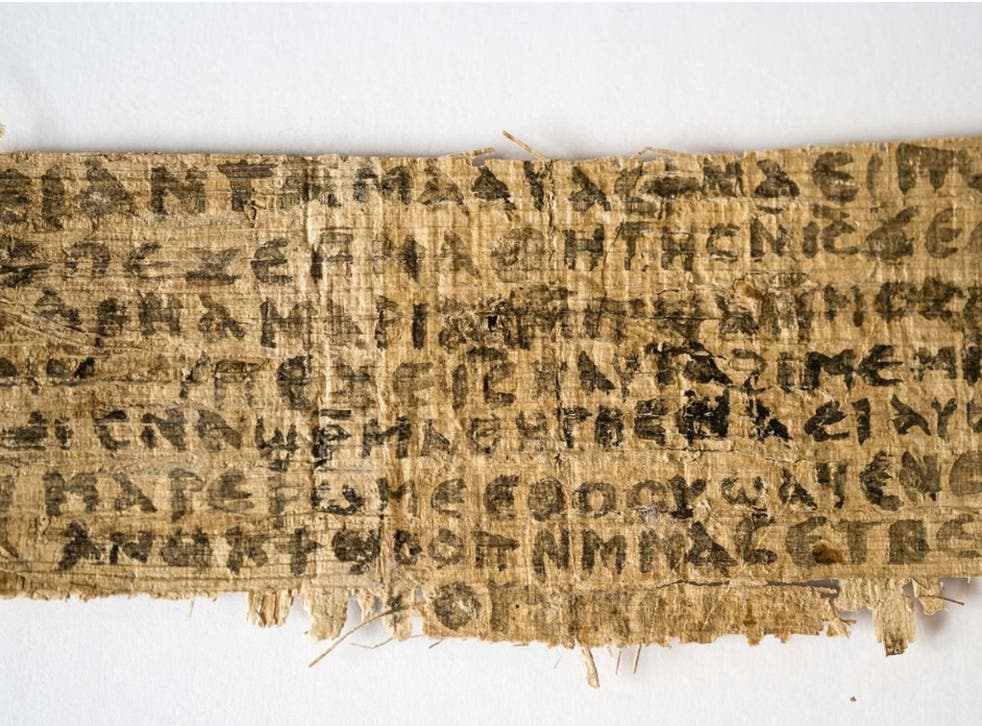 ⲉⲓ ⲁⲛ ⲧⲁⲙⲁⲁⲩ ⲁⲥϯ ⲛⲁⲉⲓ ⲡ
ⲡⲉϫⲉ ⲙⲙⲁⲑⲏⲧⲏⲥ ⲛⲓ̅ⲥ̅ ϫⲉ
ⲁⲣⲛⲁ ⲙⲁⲣⲓⲁⲙ ⲙⲡϣⲁ ⲙⲙⲟⲥ
ⲡⲉϫⲉ ⲓ̅ⲥ̅ ⲛⲁⲩ ⲧⲁϩⲓⲙⲉ ⲙⲛ
ⲥⲛⲁϣⲣ̅ⲙⲁⲑⲏⲧⲏⲥ ⲛⲁⲉⲓ ⲁⲩ
ⲙⲁⲣⲉⲣⲱⲙⲉ ⲉⲑⲟⲟⲩ ϣⲁϥⲉ ⲛⲉ
ⲁⲛⲟⲕ ϯϣⲟⲟⲡ ⲛⲙⲙⲁⲥ ⲉⲧⲃⲉ